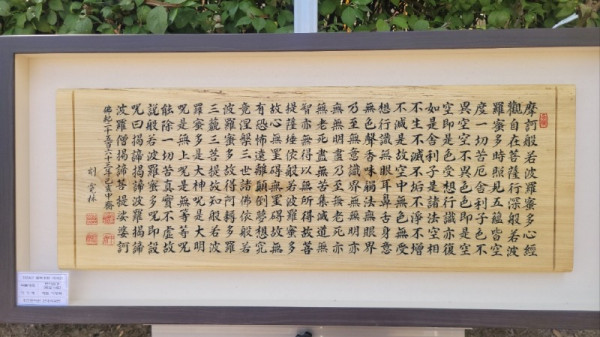 摩訶般若波羅蜜多心經
觀自在菩薩行深般若波
羅蜜多時照見五蘊皆空
度一切苦厄舍利子色不
異空空不異色色卽是空
空卽是色受想行識亦復
如是舍利子是諸法空相
不生不滅不垢不淨不增
不減是故空中無色無受
想行識無眼耳鼻舌身意
無色聲香味觸法無眼界
乃至無意識界無無明亦
無無明盡乃至無老死亦
無老死盡無苦集滅道無
智亦無得以無所得故菩
提薩埵依般若波羅蜜多
故心無罣碍無罣碍故無
有恐怖遠離顚倒夢想究
竟涅槃三世諸佛依般若
波羅蜜多故得阿耨多羅
三藐三菩提故知般若波
羅蜜多是大神呪是大明
呪是無上呪是無等等呪
能除一切苦眞實不虛故
說般若波羅蜜多呪卽說
呪曰揭諦揭諦波羅揭諦
波羅僧揭諦菩提娑婆訶
佛紀二千五百六十三年己亥中